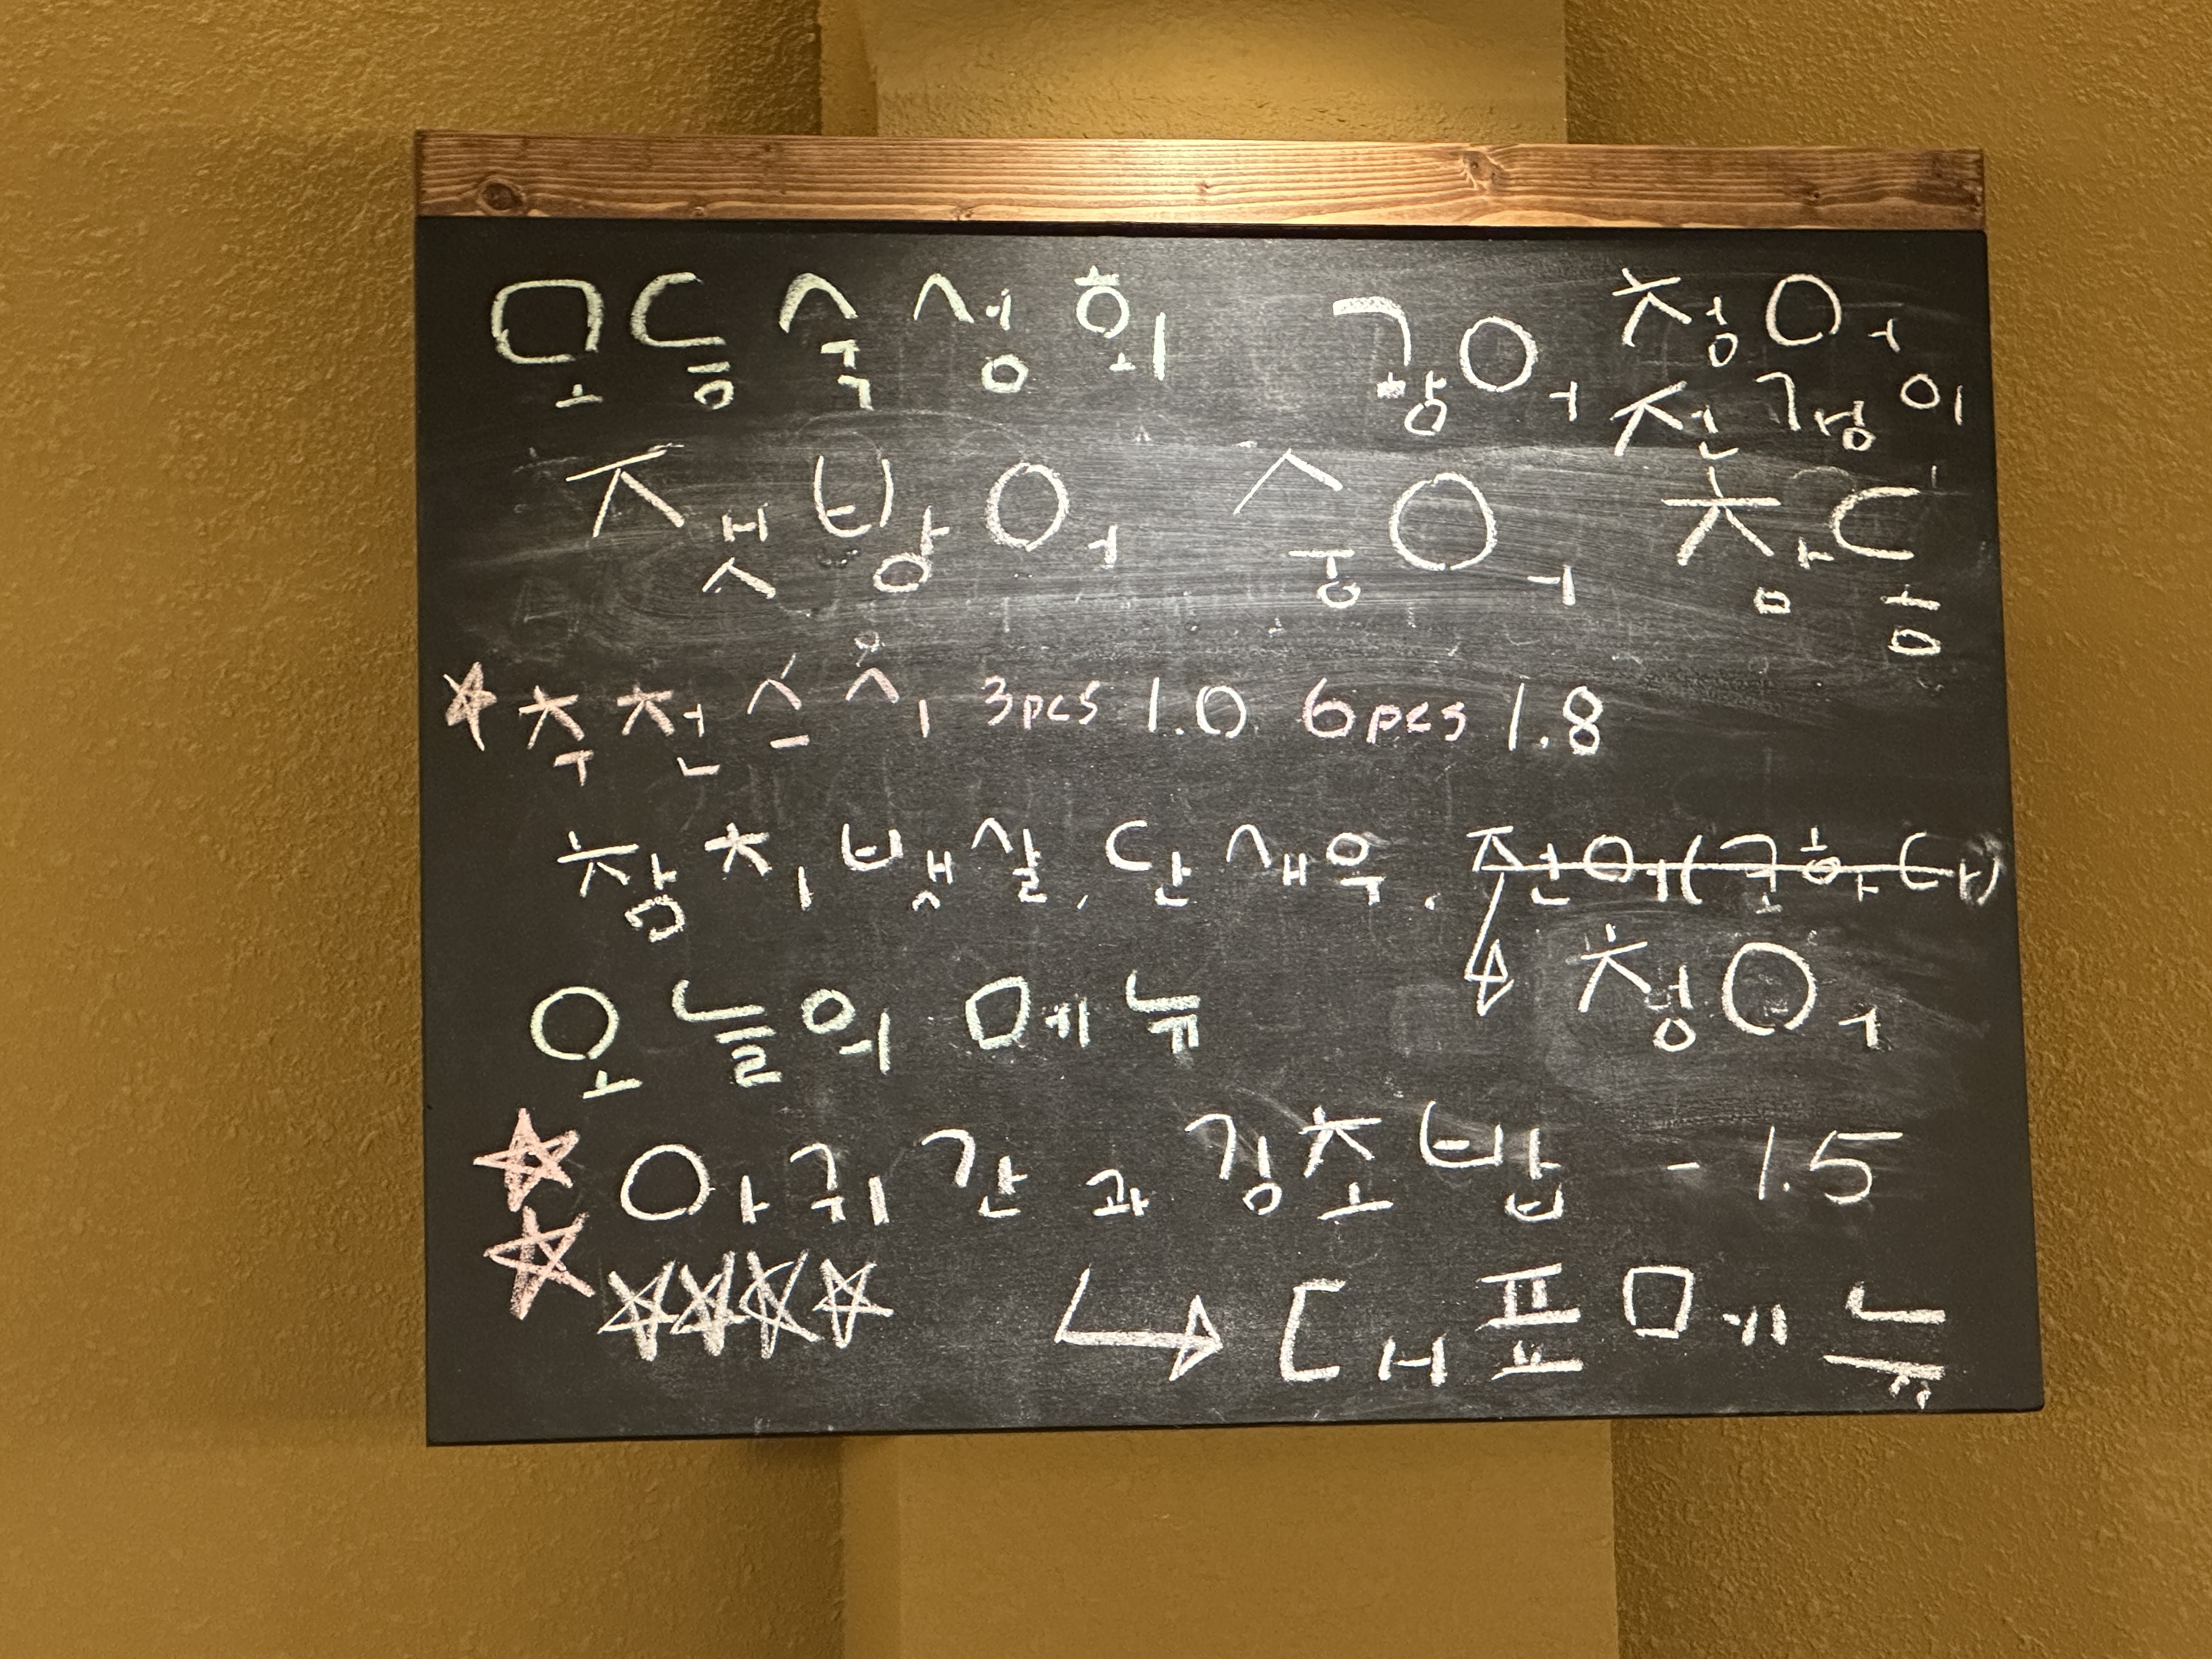 모듬숙성회 광어 청어
전갱이
잿방어 숭어 참돔
☆ 추천 스시 3pcs 1.0 6pcs 1.8
참치뱃살, 단새우, 전어(고하다)
청어
오늘의 메뉴
☆ 아귀간과 김초밥 - 1.5
☆ ☆☆☆☆ ↳ 대표메뉴